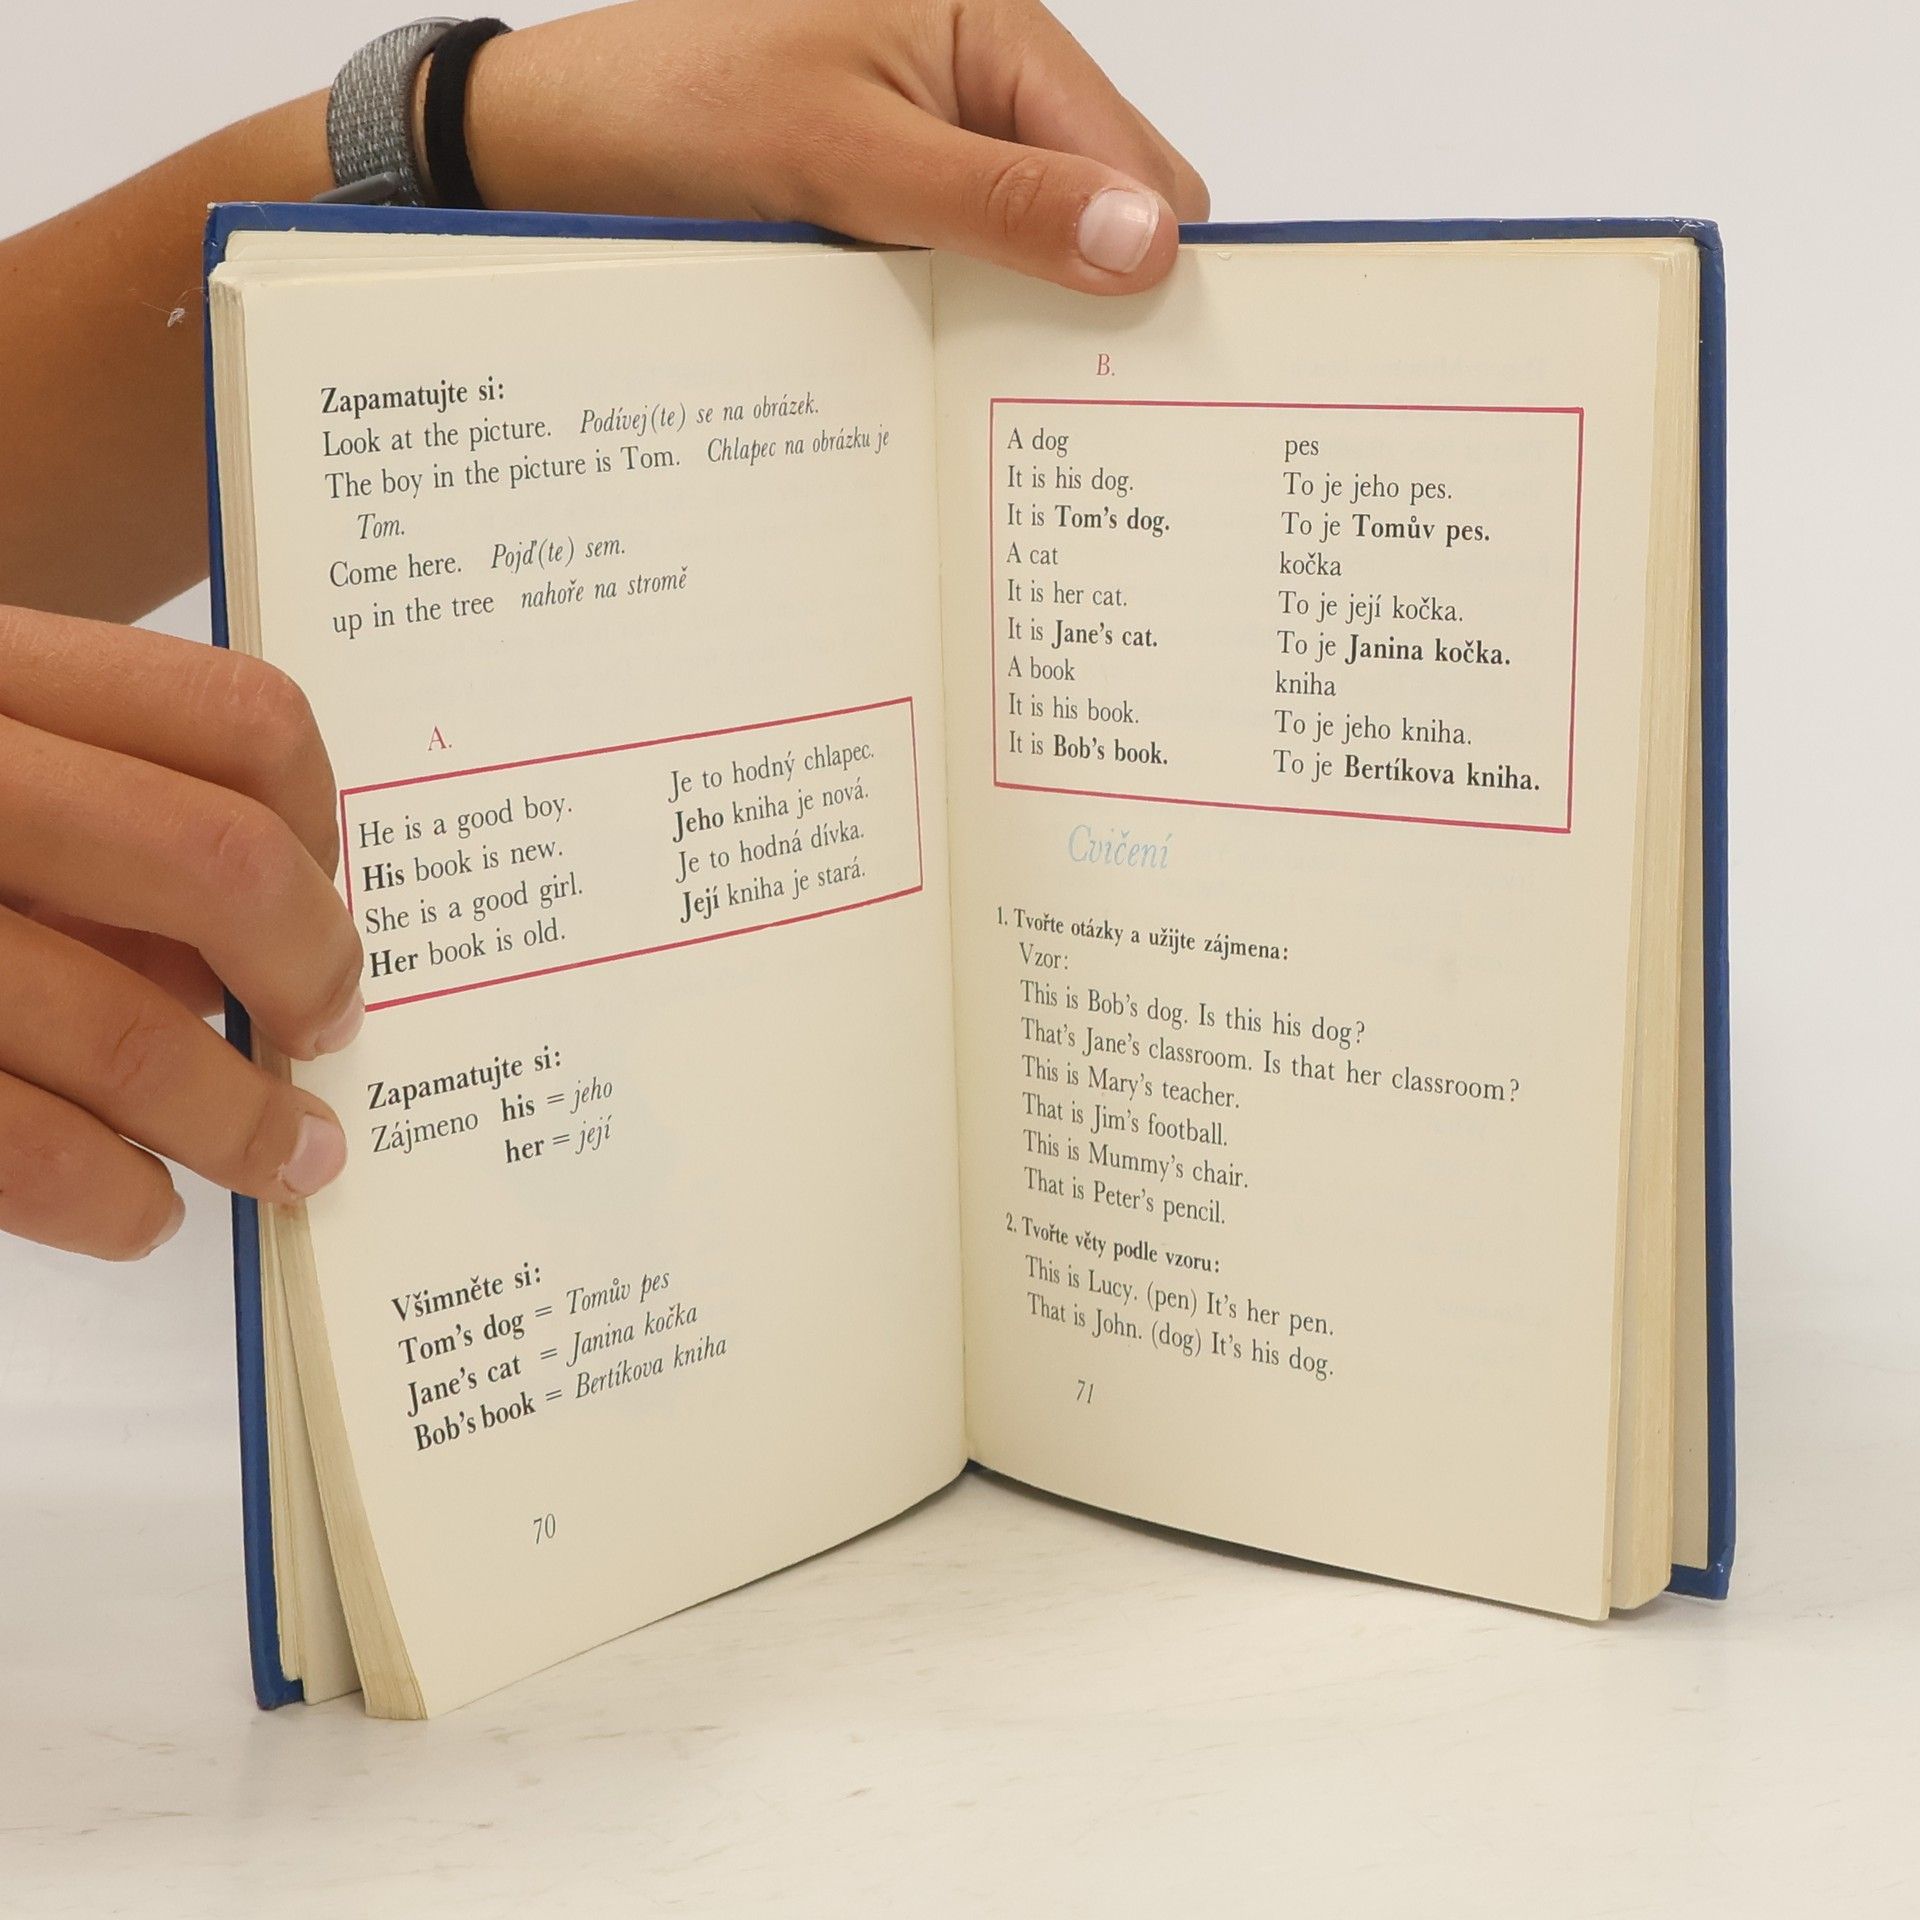 Zapamatujte si:
Look at the picture. Podívej(te) se na obrázek.
The boy in the picture is Tom. Chlapec na obrázku je
Tom.
Come here. Pojď(te) sem.
up in the tree nahoře na stromě
A.
He is a good boy. Je to hodný chlapec.
His book is new. Jeho kniha je nová.
She is a good girl. Je to hodná dívka.
Her book is old. Její kniha je stará.
Zapamatujte si:
Zájmeno his = jeho
her = její
Všimněte si:
Tom's dog = Tomův pes
Jane's cat = Janina kočka
Bob's book = Bertíkova kniha
70
B.
A dog pes
It is his dog. To je jeho pes.
It is Tom's dog. To je Tomův pes.
A cat kočka
It is her cat. To je její kočka.
It is Jane's cat. To je Janina kočka.
A book kniha
It is his book. To je jeho kniha.
It is Bob's book. To je Bertíkova kniha.
Cvičení
1. Tvořte otázky a užijte zájmena:
Vzor:
This is Bob's dog. Is this his dog?
That's Jane's classroom. Is that her classroom?
This is Mary's teacher.
That is Jim's football.
This is Mummy's chair.
That is Peter's pencil.
2. Tvořte věty podle vzoru:
This is Lucy. (pen) It's her pen.
That is John. (dog) It's his dog.
71